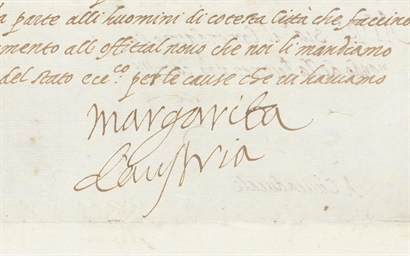 a parte alli huomini di cotesta Città che faccino
amento all official novo che noi li mandiamo
del stato ecc.co per le cause che vi haviamo
margarita
daustria